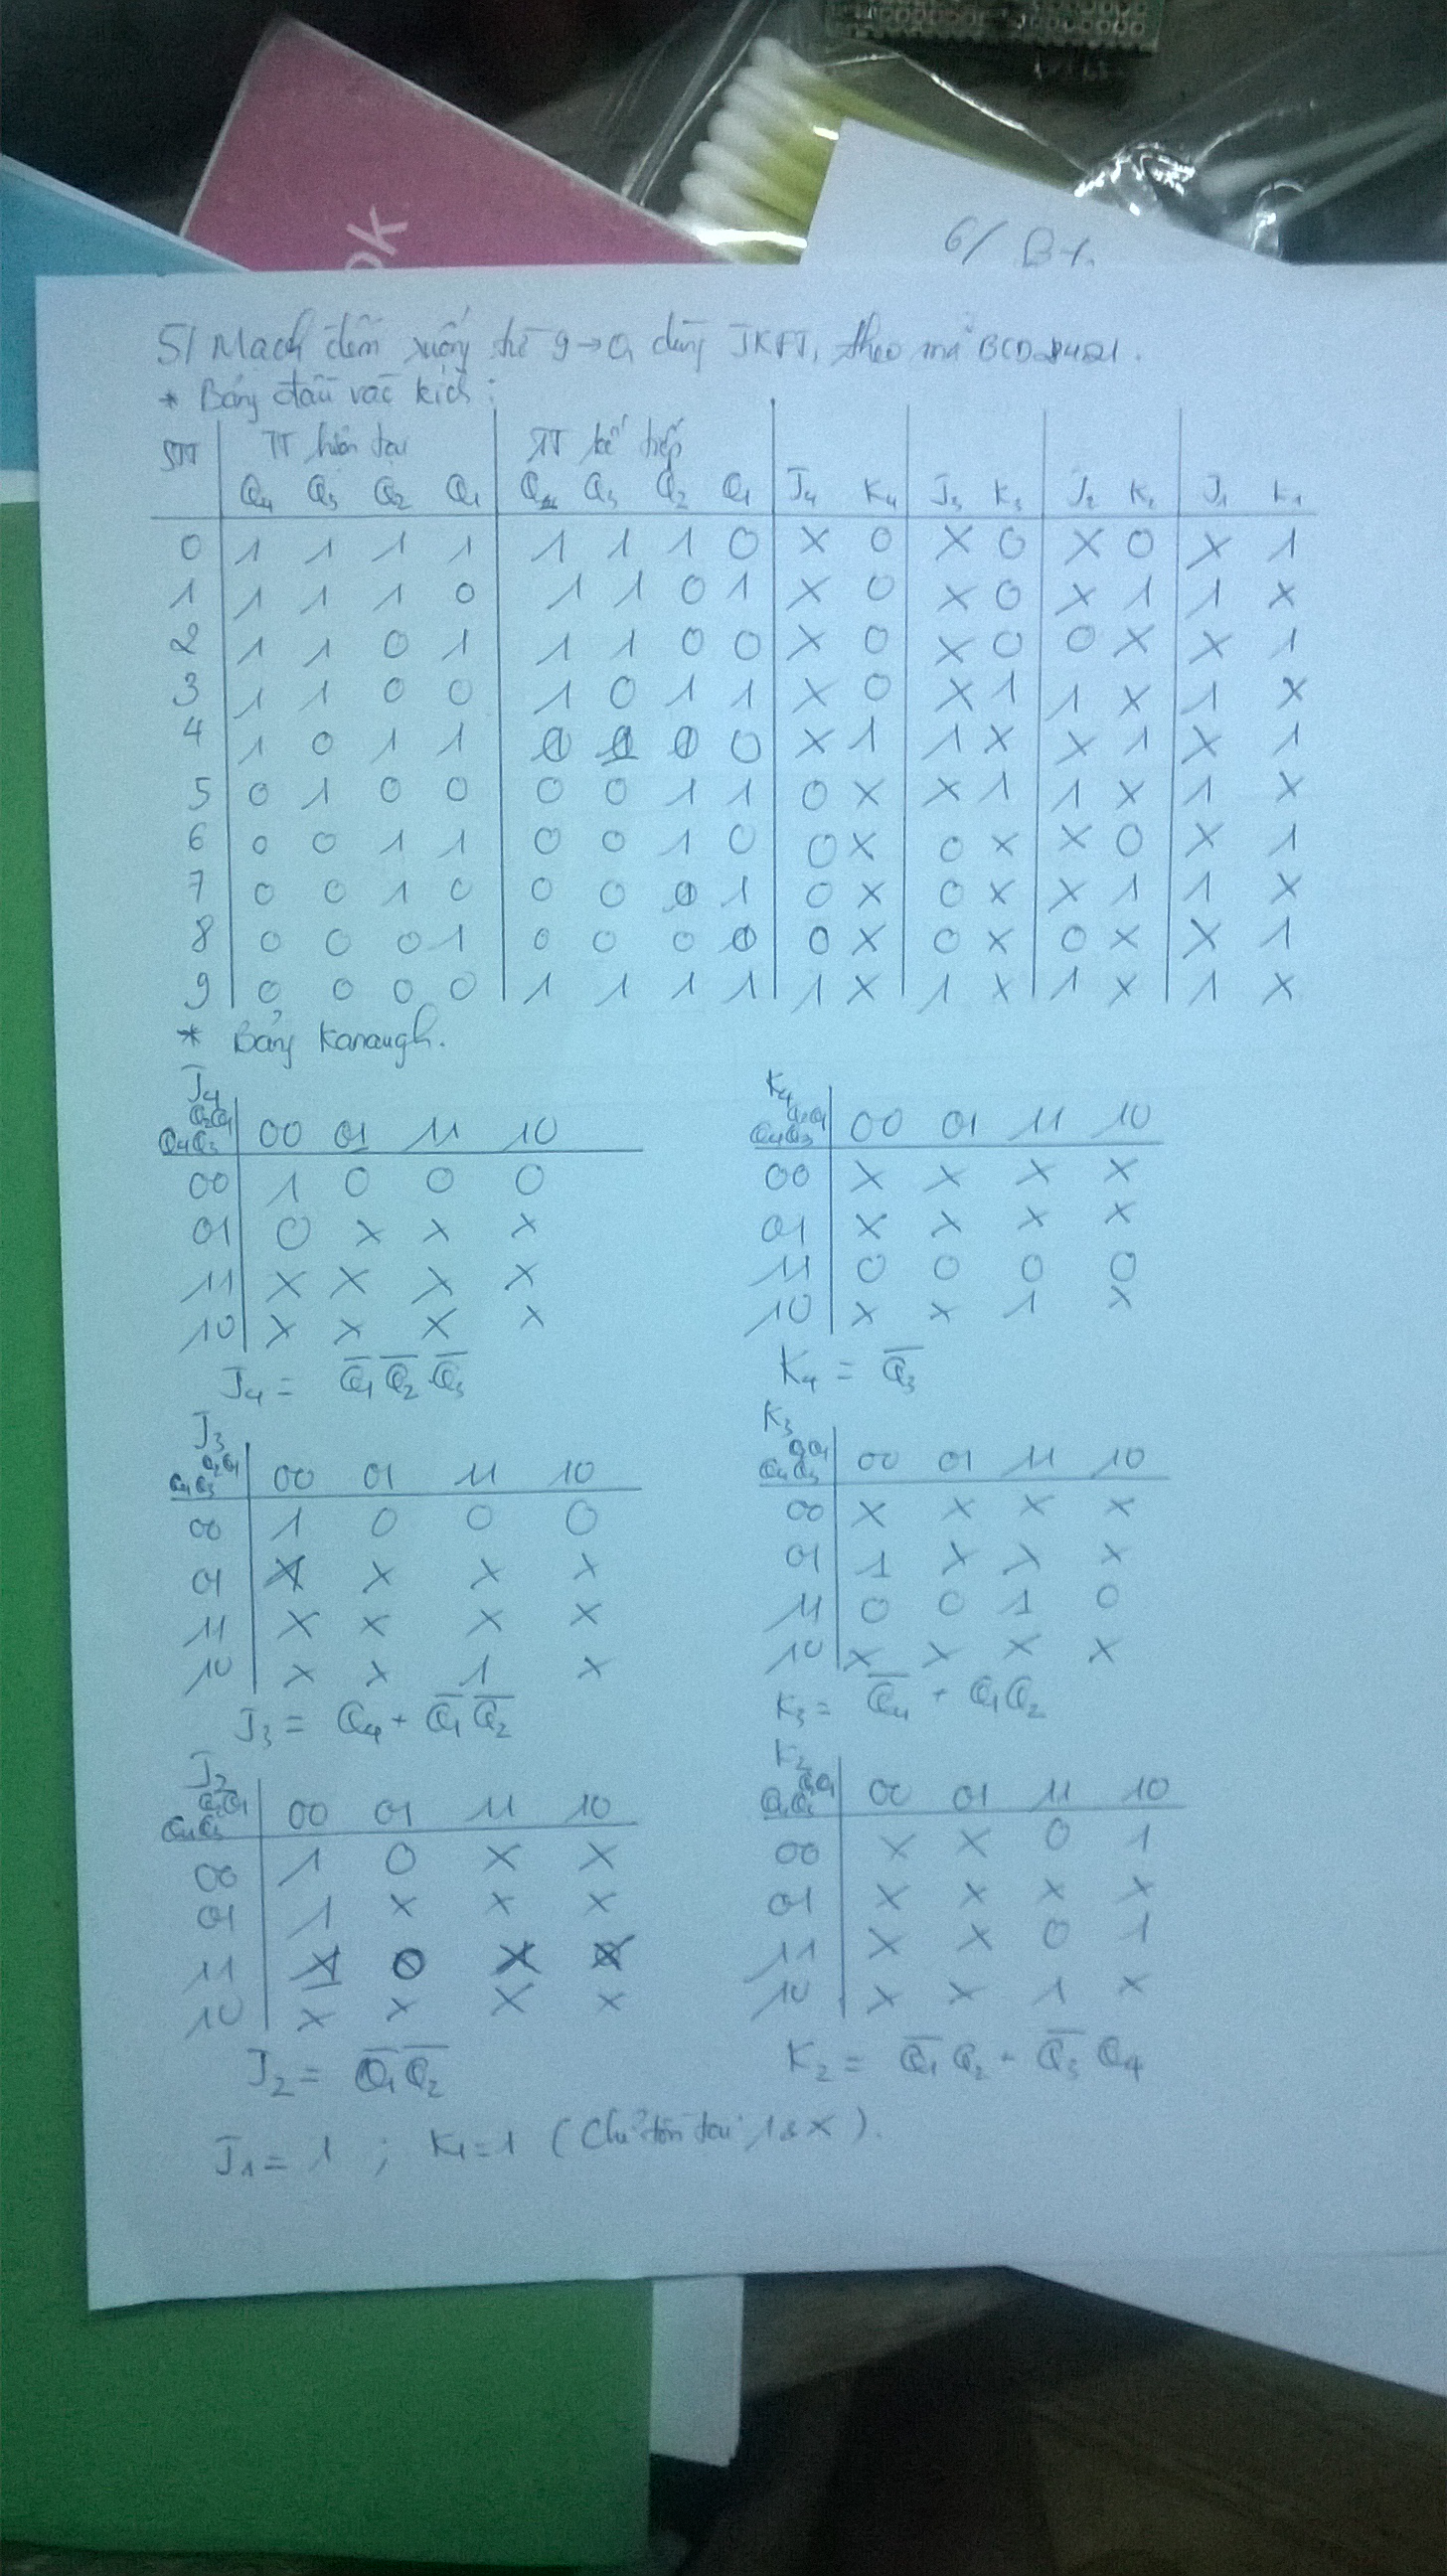 ok
6/ B1.
5/ Mạch đếm xuống từ 9→0, dùng JKFF, theo mã BCD 8421.
* Bảng đầu vào kích:
STT TT hiện tại TT kế tiếp
Q4 Q3 Q2 Q1 Q4 Q3 Q2 Q1 J4 K4 J3 K3 J2 K2 J1 K1
0 1 1 1 1 1 1 1 0 X 0 X 0 X 0 X 1
1 1 1 1 0 1 1 0 1 X 0 X 0 X 1 1 X
2 1 1 0 1 1 1 0 0 X 0 X 0 0 X X 1
3 1 1 0 0 1 0 1 1 X 0 X 1 1 X 1 X
4 1 0 1 1 0 1 0 0 X 1 1 X X 1 X 1
5 0 1 0 0 0 0 1 1 0 X X 1 1 X 1 X
6 0 0 1 1 0 0 1 0 0 X 0 X X 0 X 1
7 0 0 1 0 0 0 0 1 0 X 0 X X 1 1 X
8 0 0 0 1 0 0 0 0 0 X 0 X 0 X X 1
9 0 0 0 0 1 1 1 1 1 X 1 X 1 X 1 X
* Bảng Karaugh.
J4
Q2Q1
Q4Q3 00 01 11 10
00 1 0 0 0
01 0 X X X
11 X X X X
10 X X X X
J4 = Q̅1 Q̅2 Q̅3
K4
Q2Q1
Q4Q3 00 01 11 10
00 X X X X
01 X X X X
11 0 0 0 0
10 X X 1 X
K4 = Q̅3
J3
Q2Q1
Q4Q3 00 01 11 10
00 1 0 0 0
01 X X X X
11 X X X X
10 X X 1 X
J3 = Q4 + Q̅1 Q̅2
K3
Q2Q1
Q4Q3 00 01 11 10
00 X X X X
01 1 X X X
11 0 0 1 0
10 X X X X
K3 = Q̅4 + Q1Q2
J2
Q2Q1
Q4Q3 00 01 11 10
00 1 0 X X
01 1 X X X
11 1 0 X X
10 X X X X
J2 = Q̅1 Q̅2
K2
Q2Q1
Q4Q3 00 01 11 10
00 X X 0 1
01 X X X X
11 X X 0 1
10 X X 1 X
K2 = Q̅1 Q2 + Q̅3 Q4
J1 = 1 ; K1 = 1 (Chỉ tồn tại 1 & X).